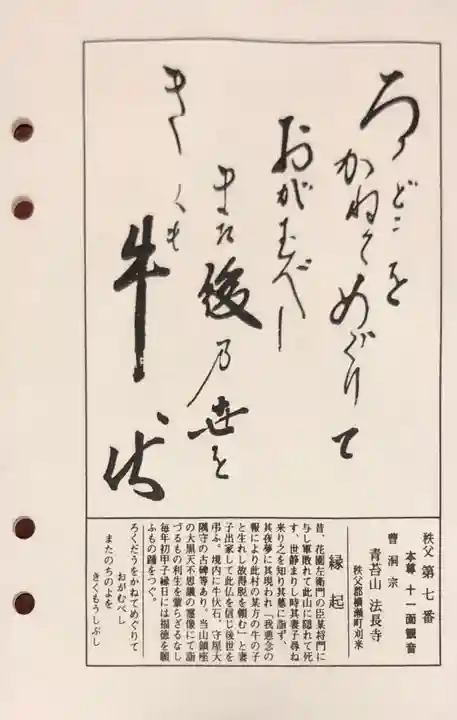 ろくどうを
かねてめぐりて
おがむべし
また後乃世を
きくも
牛ぶし
秩父 第七番
本尊 十一面観音
曹洞宗
青苔山 法長寺
秩父郡横瀬町苅米
縁起
昔、花園左衛門の臣某将門に
与し軍敗れて此山に隠れて死
す、世静まりし時其妻子尋ね
来り之を知り其墓に詣ず、
其夜夢に其現われ「我悪念の
報により此村の某方の牛の子
と生れし故得脱を頼む」と妻
子出家して此仏を信じ後世を
弔ふ。境内に牛伏石、守屋大
隅守の古碑等あり、当山鎮座
の大黒天不思議の霊像にて詣
づるもの利生を蒙らざるなし
毎年初甲子縁日には福徳を願
ふもの踵をつぐ。
ろくだうをかねてめぐりて
おがむべし
またのちのよを
きくもうしぶし